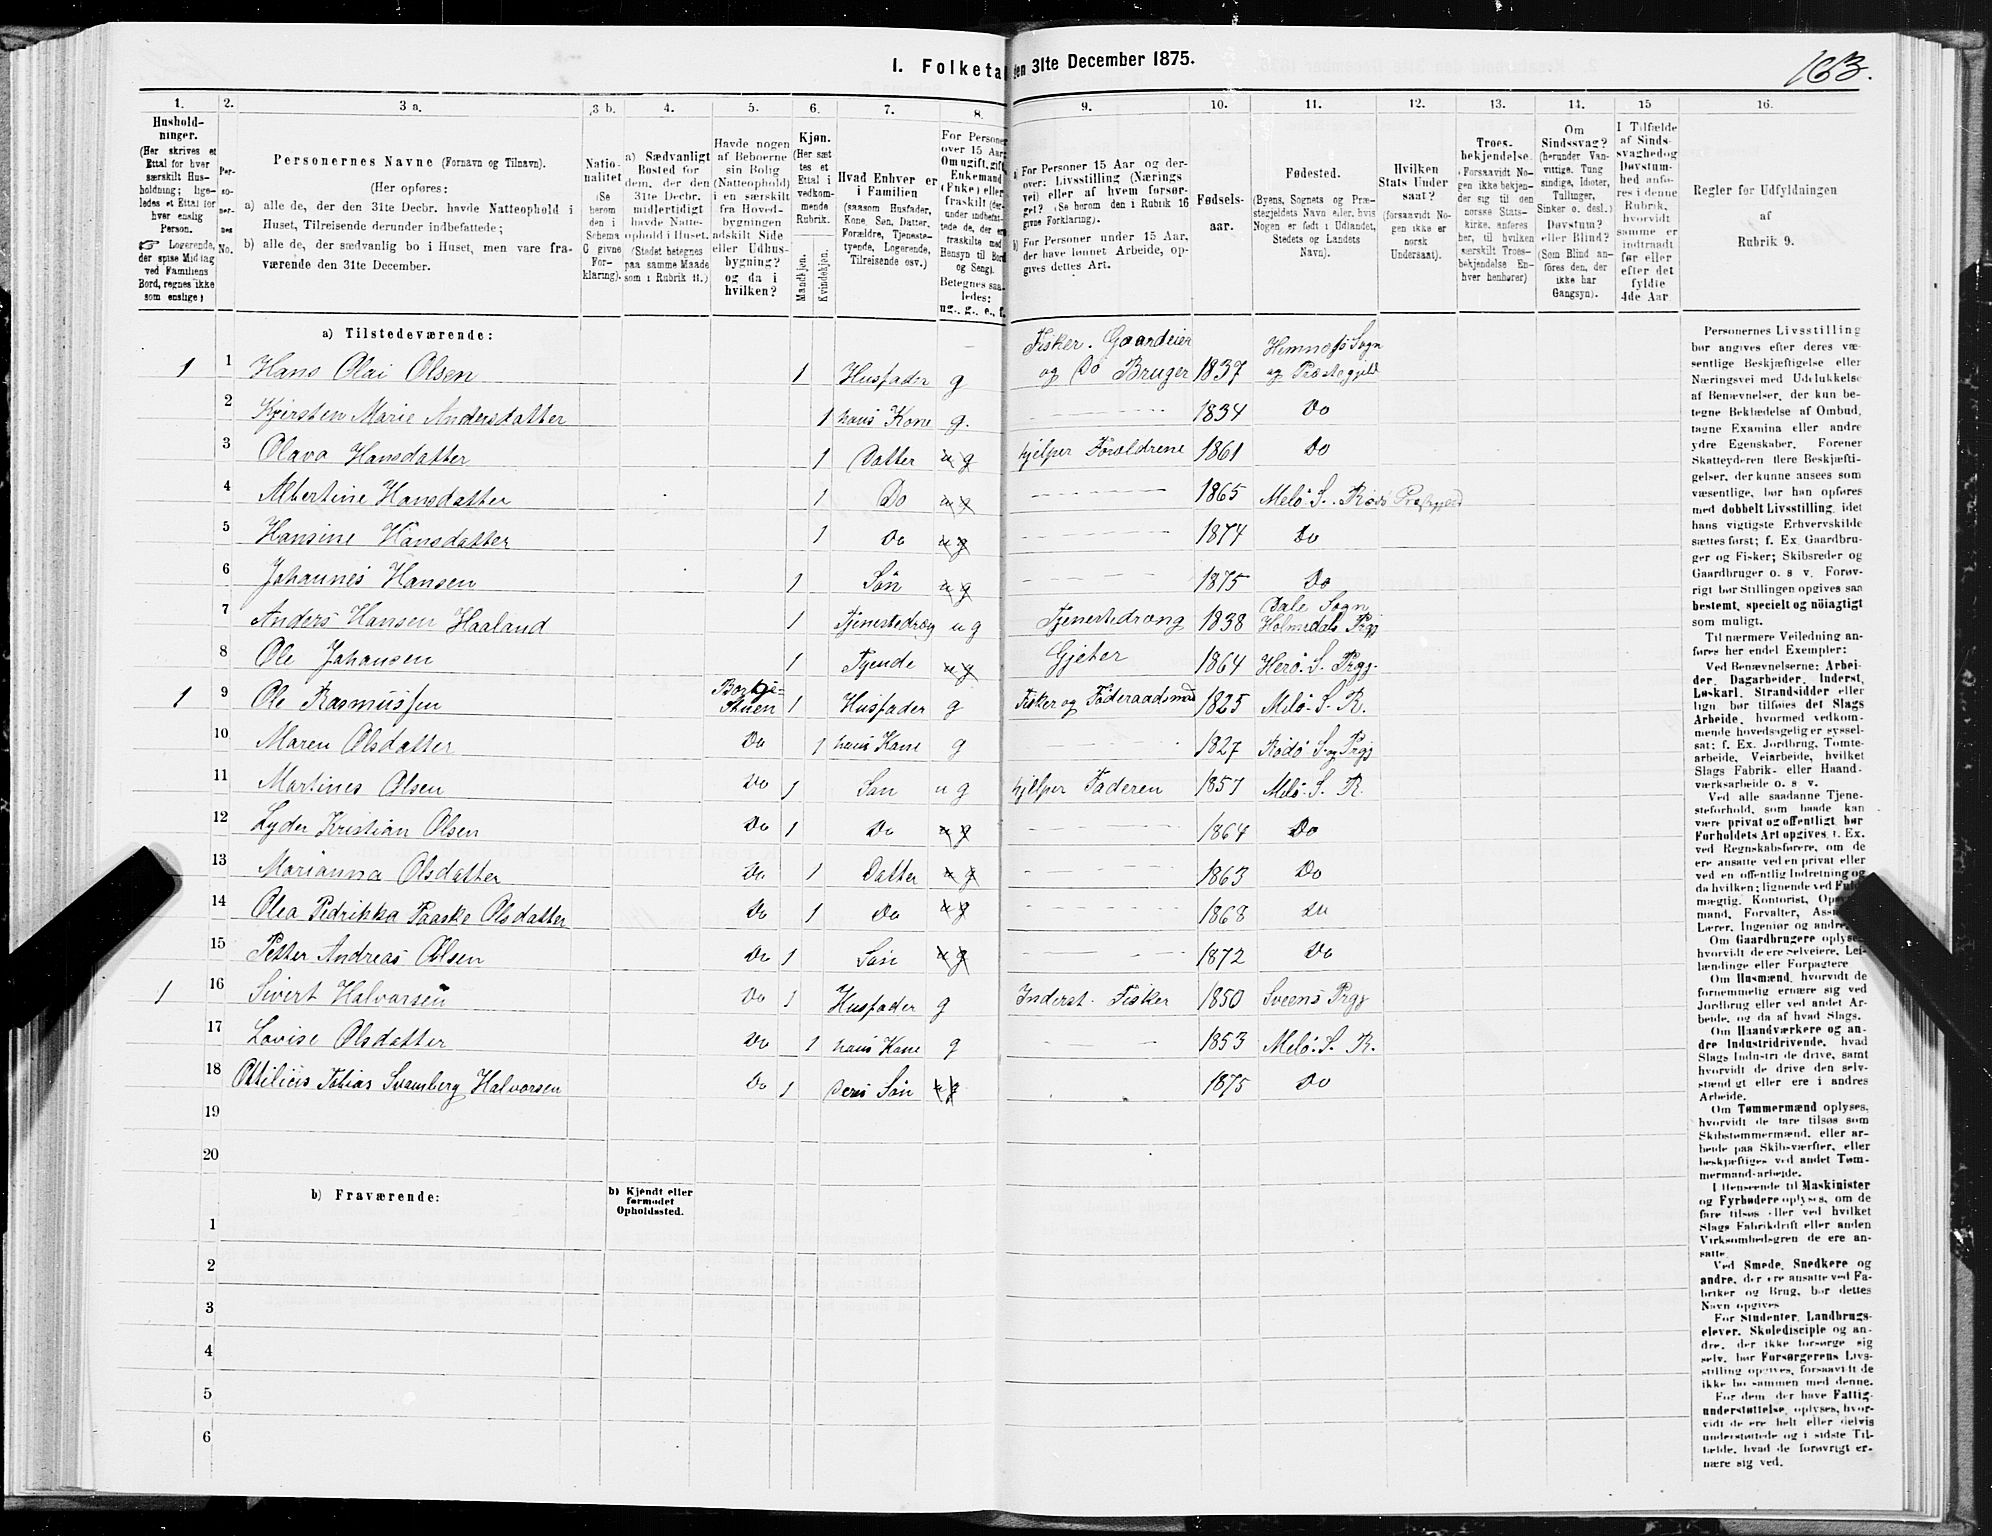 163.
I. Folketa den 31te December 1875.
1. 2. 3 a. 3 b. 4. 5. 6. 7. 8. 9. 10. 11. 12. 13. 14. 15 16.
Hushold-
ninger.
(Her skrives et
Ettal for hver
særskilt Hus-
holdning; lige-
ledes et Ettal for
hver enslig
Person.
☞ Logerende,
der spise Middag
ved Familiens
Bord, regnes ikke
som enslige)
Per-
so-
ner-
nes
No.
Personernes Navne (Fornavn og Tilnavn).
(Her opføres:
a) alle de, der den 31te Decbr. havde Natteophold i
Huset, Tilreisende derunder indbefattede;
b) alle de, der sædvanlig bo i Huset, men vare fra-
værende den 31te December.
Natio-
nalitet
(Se
herom
den i
Schema
C givne
For-
klaring).
a) Sædvanligt
Bosted for
dem, der den
31te Decbr.
midlertidigt
havde Natte-
ophold i Huset.
(Stedet betegnes
paa samme Maade
som i Rubrik 11.)
Havde nogen
af Beboerne
sin Bolig
(Natteophold)
i en særskilt
fra Hoved-
bygningen
adskilt Side
eller Udhus-
bygning?
og da i
hvilken?
Kjøn.
(Her sæt
tes et
Ettal i
vedkom-
mende
Rubrik.
Mandkjøn.
Kvindekjøn.
Hvad Enhver er
i Familien
(saasom Husfader,
Kone, Søn, Datter,
Forældre, Tjeneste-
tyende, Logerende,
Tilreisende osv.)
For Persone
over 15 Aar
Om ugift, gift
Enkemand
(Enke) eller
fraskilt (der-
under indbefat-
tede de, der er
fraskilte med
Hensyn til Bord
og Seng).
Betegnes saa-
ledes:
ug., g., e., f.
a) For Personer 15 Aar og der-
over: Livsstilling (Nærings
vei) eller af hvem forsør-
get? (Se herom den i Rubrik 16
givne Forklaring).
b) For Personer under 15 Aar,
der have lønnet Arbeide, op-
gives dettes Art.
Fødsels-
aar.
Fødested.
(Byens, Sognets og Præ-
stegjeldets Navn eller, hvis
Nogen er født i Udlandet,
Stedets og Landets
Navn).
Hvilken
Stats Under
saat?
(forsaavidt No-
gen ikke er
norsk
Undersaat).
Troes-
bekjendelse.
(Forsaavidt No-
gen ikke bekjen-
der sig til den
norske Stats-
kirke, anføres
her, til hvilken
særskilt Troes-
bekjendelse En-
hver henhører)
Om
Sindssvag?
(herunder Van-
vittige, Tung
sindige, Idioter,
Tullinger,
Sinker o. desl.)
Døvstum?
eller Blind?
(Som Blind an-
føres den, der
ikke har
Gangsyn).
I Tilfælde
af Sinds-
svaghed og
Døvstum-
hed anfø-
res i denne
Rubrik,
hvorvidt
samme er
indtraadt
før eller
efter det
fyldte
4de Aar
Regler for Udfyldningen
af
Rubrik 9.
a) Tilstedeværende:
1 1 Hans Olai Olsen 1 Husfader g Fisker. Gaardeier og Do Bruger 1837 Hemnæs Sogn og Præstegjeld
2 Kjersten Marie Andersdatter 1 hans Kone g. 1834 Do
3 Olava Hansdatter 1 Datter ug hjelper Foroldrene 1861 Do
4 Albertine Hansdatter 1 Do ug 1865 Melö S. Rödö
5 Hansine Hansdatter 1 Do ug 1874 Do
6 Johannes Hansen 1 Sön ug 1875 Do
7 Anders Hansen Haaland 1 Tjenestedreng ug Tjenestedreng 1838 Dale Sogn Holmedals Prgj
8 Ole Johansen 1 Tyende ug Gjeter 1864 Herö. S. Prgj.
1 9 Ole Rasmussen Stuen 1 Husfader g Fisker og Föderaadsmd 1825 Melö. S. R.
10 Maren Olsdatter Do 1 hans Kone g 1827 Rödö S og Prgj
11 Martines Olsen Do 1 Sön ug hjelper Faderen 1857 Melö. S. R.
12 Lyder Kristian Olsen Do 1 Do ug 1864 Do
13 Marianna Olsdatter Do 1 Datter ug 1863 Do
14 Olea Pedrikka Paaske Olsdatter Do 1 Do ug 1868 Do
15 Petter Andreas Olsen Do 1 Sön ug 1872 Do
1 16 Sivert Halvorsen Do 1 Husfader g Inderst. Fisker 1850 Sveens Prgj
17 Lovise Olsdatter Do 1 hans Kone g 1853 Melö. S. R.
18 Ottilius Tobias Svamberg Halvorsen Do 1 Deres Sön ug 1875 Do
19
20
b) Fraværende:
b) Kjendt eller
formodet
Opholdssted.
1
2
3
4
5
6
Personernes Livsstilling
bør angives efter deres væ-
sentlige Beskjæftigelse eller
Næringsvei med Udelukkelse
af Benævnelser, der kun be-
tegne Beklædelse af Ombud,
tagne Examina eller andre
ydre Egenskaber. Forener
Skatteyderen flere Beskjæfti-
gelser, der kunne ansees som
væsentlige, bør han opføres
med dobbelt Livsstilling, idet
hans vigtigste Erhvervskilde
sættes først; f. Ex. Gaardbru-
ger og Fisker; Skibsreder og
Gaardbruger o. s v. Forøv-
rigt bør Stillingen opgives saa
bestemt, specielt og nöiagtigt
som muligt.
Til nærmere Veiledning an-
føres her endel Exempler:
Ved Benævnelserne: Arbei-
der, Dagarbeider, Inderst,
Løskarl, Strandsidder eller
lign. bør tilføies det Slags
Arbeide, hvormed vedkom-
mende hovedsagelig er syssel-
sat; f. Ex. Jordbrug, Tomte-
arbeide, Veiarbeide, hvilket
Slags Fabrik- eller Haand-
værksarbeide o. s v.
Ved alle saadanne Tjene-
steforhold, som baade kan
være privat og offentligt, bør
Forholdets Art opgives, f. Ex.
ved Regnskabsførere, om de
ere ansatte ved en privat eller
ved en offentlig Indretning og
da hvilken; lignende ved Fuld
mægtig, Kontorist, Opsyns
mand, Forvalter, Ass
Lærer, Ingeniør og andre.
Om Gaardbrugere oplyse
hvorvidt de ere selveiere, Lei-
lændinge eller Forpagtere
Om Husmænd, hvorvidt de
fornemmelig ernære sig ved
Jordbrug eller ved andet Ar-
beide, og da af hvad Slags.
Om Haandværkere og an-
dre Industridrivende, hvad
Slags Industri de drive, samt
hvorvidt de drive den selv-
stændigt eller ere i andres
Arbeide.
Om Tømmermænd oplyses,
hvorvidt de fare tilsøs som
Skibstømmermænd, eller ar-
beide paa Skibsværfter, eller
beskjæftiges ved andet Tøm-
mermand-arbeide.
I Henseende til Maskinister
og Fyrbødere oplyses, om de
fare tilsøs eller ved hvilket
Slags Fabrikdrift eller anden
Virksomhedsgren de ere an-
satte.
Ved Smede, Snedkere og
andre, der ere ansatte ved Fa-
briker og Brug, bør dettes
Navn opgives
For Studenter, Landbrugs-
elever, Skoledisciple og an-
dre, der ikke forsørge sig
selv, bør Forsørgerens Livs-
stilling opgives, forsaavidt de
ikke bo sammen med denne.
For dem, der have Fattig-
understøttelse, oplyses, hvor-
vidt de ere helt eller delvis
understøttede og i sidste Til-
fælde, hvad de forøvrigt er-
nære sig ved.